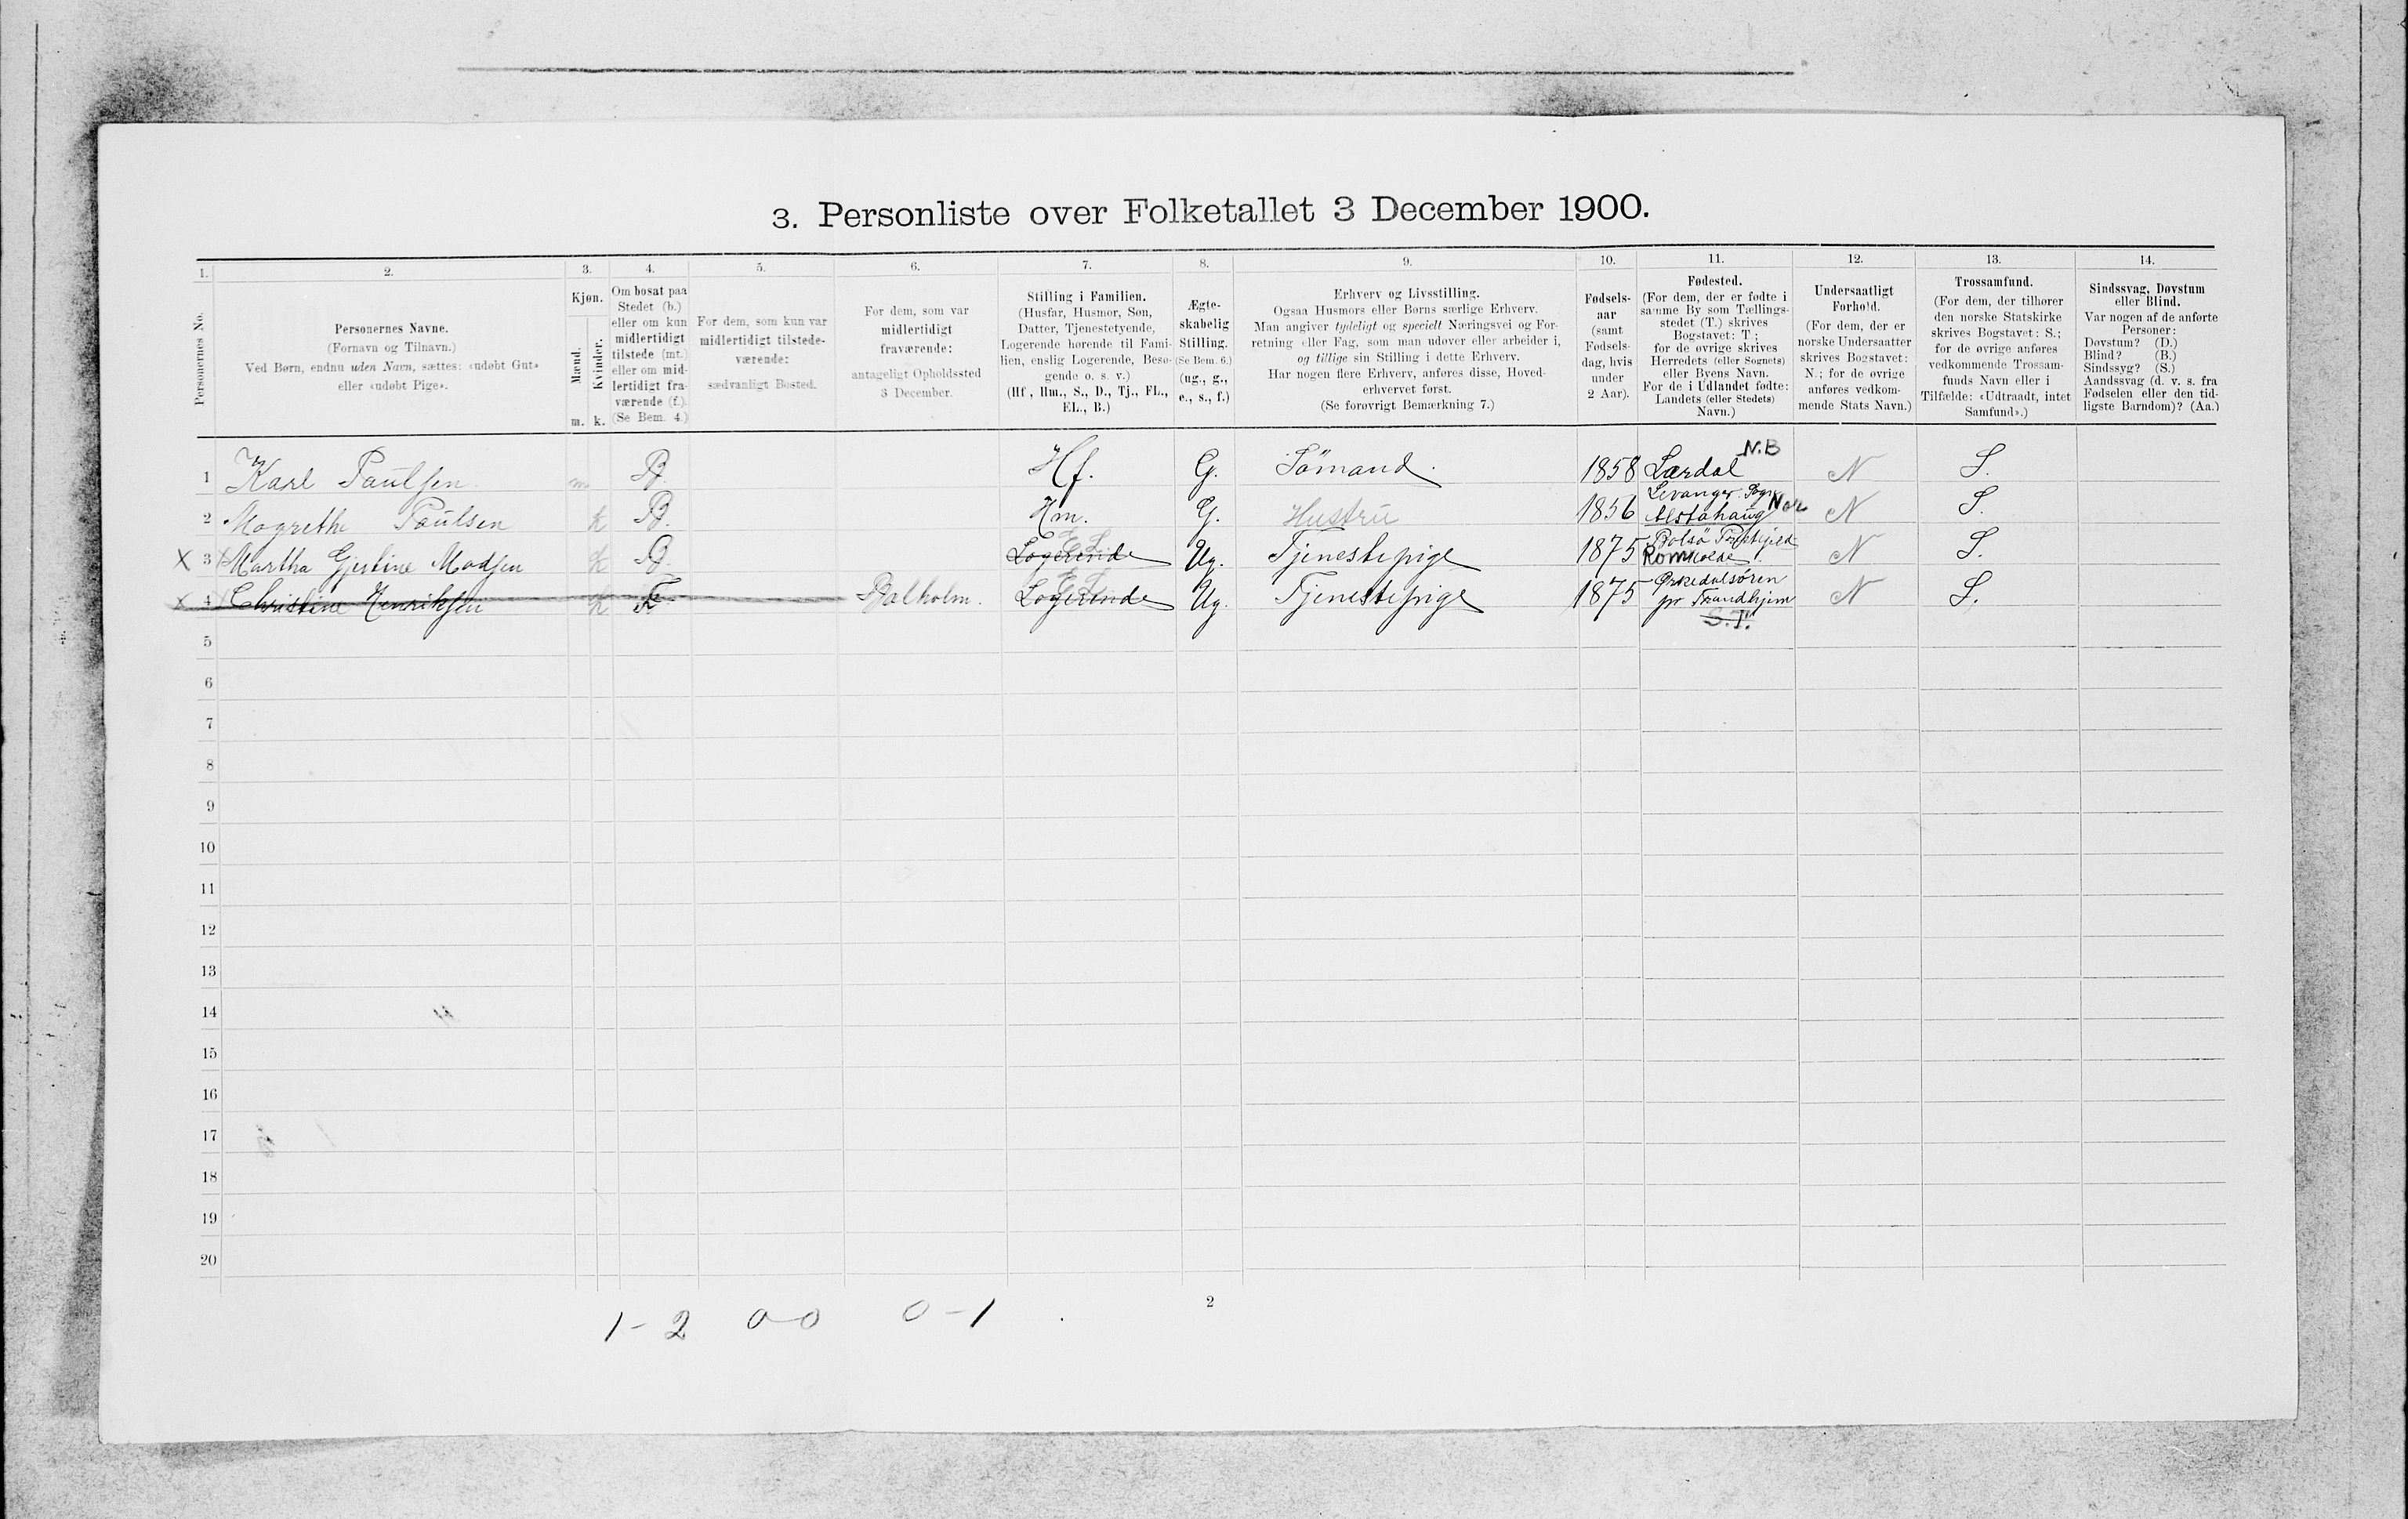 3. Personliste over Folketallet 3 December 1900.
1. 2. 3. 4. 5. 6. 7. 8. 9. 10. 11. 12. 13. 14.
Personernes No.
Personernes Navne.
(Fornavn og Tilnavn.)
Ved Børn, endnu uden Navn, sættes: «udøbt Gut»
eller «udøbt Pige».
Kjøn.
Mænd.
Kvinder.
m. k.
Om bosat paa
Stedet (b.)
eller om kun
midlertidigt
tilstede (mt.)
eller om mid-
lertidigt fra-
værende (f.)
(Se Bem. 4.)
For dem, som kun var
midlertidigt tilstede-
værende:
sædvanligt Bosted.
For dem, som var
midlertidigt
fraværende:
antageligt Opholdssted
3 December.
Stilling i Familien.
(Husfar, Husmor, Søn,
Datter, Tjenestetyende,
Logerende hørende til Fami-
lien, enslig Logerende, Besø-
gende o. s. v.)
(Hf., Hm., S., D., Tj., FL.,
EL., B.)
Ægte-
skabelig
Stilling.
(Se Bem. 6.)
(ug., g.,
e., s., f.)
Erhverv og Livsstilling.
Ogsaa Husmors eller Børns særlige Erhverv.
Man angiver tydeligt og specielt Næringsvei og For-
retning eller Fag, som man udøver eller arbeider i,
og tillige sin Stilling i dette Erhverv.
Har nogen flere Erhverv, anføres disse, Hoved-
erhvervet først.
(Se forøvrigt Bemærkning 7.)
Fødsels-
aar
(samt
Fødsels-
dag, hvis
under
2 Aar).
Fødested.
(For dem, der er fødte i
samme By som Tællings-
stedet (T.) skrives
Bogstavet: T.;
for de øvrige skrives
Herredets (eller Sognets)
eller Byens Navn.
For de i Udlandet fødte:
Landets (eller Stedets)
Navn.)
Undersaatligt
Forhold.
(For dem, der er
norske Undersaatter
skrives Bogstavet:
N.; for de øvrige
anføres vedkom-
mende Stats Navn.)
Trossamfund.
(For dem, der tilhører
den norske Statskirke
skrives Bogstavet: S.;
for de øvrige anføres
vedkommende Trossam-
funds Navn eller i
Tilfælde: «Udtraadt, intet
Samfund».)
Sindssvag, Døvstum
eller Blind.
Var nogen af de anførte
Personer:
Døvstum? (D.)
Blind? (B.)
Sindssyg? (S.)
Aandssvag (d. v. s. fra
Fødselen eller den tid-
ligste Barndom)? (Aa.)
N.B
1 Karl Paulsen m B. Hf. G. Sömand. 1858 Lærdal N S.
Levanger Sogn
2 Magrethe Paulsen k B. Hm. G. Hustru 1856 Alstahaug N S.
E L
X 3 X Martha Gjertine Madsen k B. Logerende Ug. Tjenestepige 1875 Bolsö
Romsdal N S.
E L
X 4 Christine Henriksen k F. Balholm. Logerende Ug. Tjenestepige 1875 Ørkedalsören
pr Trondhjem N S.
S.T.
5
6
7
8
9
10
11
12
13
14
15
16
17
18
19
20
1-2 0-0 0-1
2